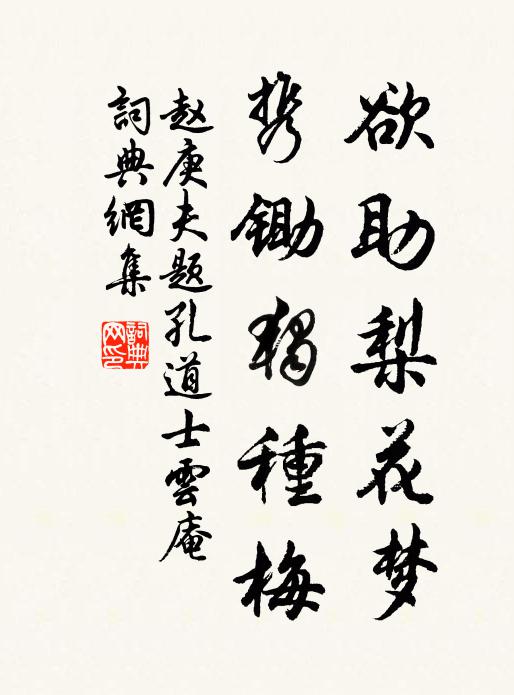 欲助梨花梦
携鋤独種梅
赵庚夫题孔道士雲庵
詞典網集
詞典网印